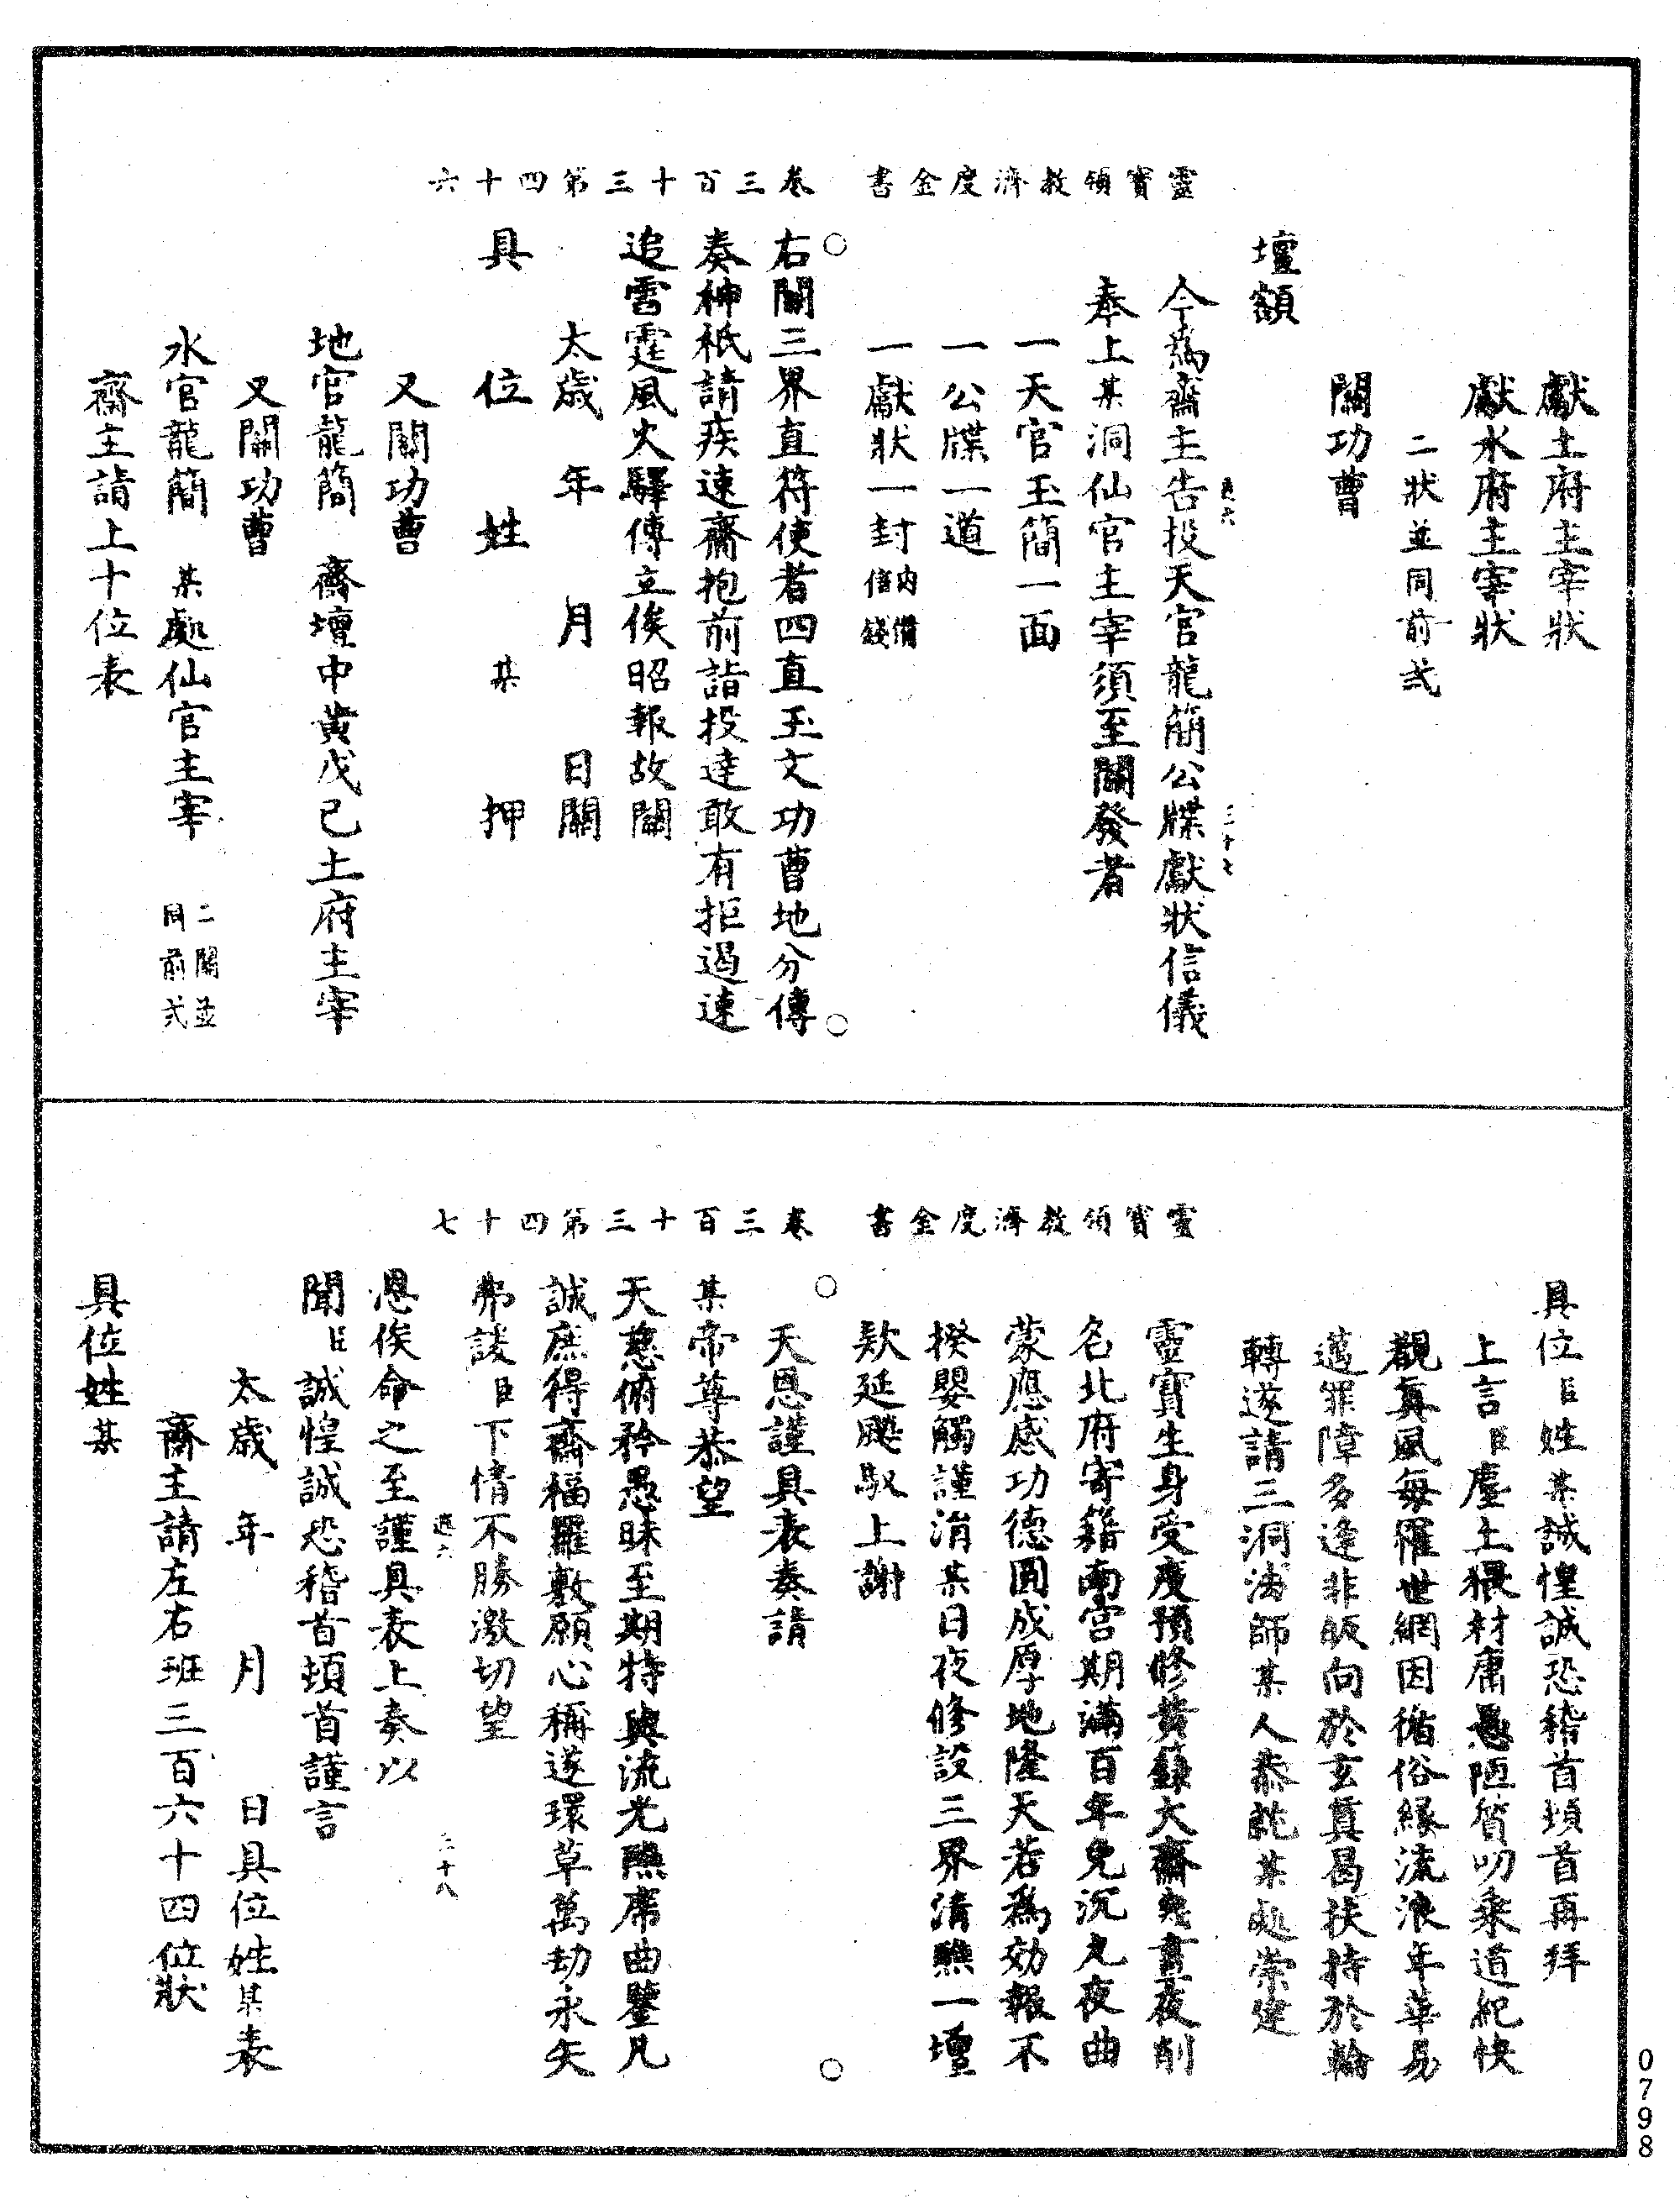 獻土府主宰狀
獻水府主宰狀
二狀並同前式
關功曹
壇額
今爲齋主告投天官龍簡公牒獻狀信儀
奉上某洞仙官主宰須至關發者
一天官玉簡一面
一公牒一道
一獻狀一封內備信錢
靈寶領教濟度金書　卷三百十三第四十六
右關三界直符使者四直玉文功曹地分傳
奏神祇請疾速齋抱前詣投達敢有拒遏速
追雷霆風火驛傳立俟昭報故關
太歲　年　月　日關
具　位　姓　某　押
又關功曹
地官龍簡　齋壇中黃戊己土府主宰
又關功曹
水官龍簡　某處仙官主宰　二關並同前式
齋主請上十位表
具位臣姓某誠惶誠恐稽首頓首再拜
上言臣塵土猥材庸愚陋質叨乘道紀快
覩眞風每罹世網因循俗緣流浪年華易
邁罪障多逢非皈向於玄眞曷扶持於輪
轉遂請三洞法師某人恭詣某處崇建
靈寶生身受度預修黃籙大齋幾晝夜削
名北府寄籍南宮期滿百年免沉九夜曲
蒙應感功德圓成厚地隆天若爲効報不
揆嬰觸謹涓某日夜修設三界清醮一壇
欵延飈馭上謝
靈寶領教濟度金書　卷三百十三第四十七
天恩謹具表奏請
某帝尊恭望
天慈俯矜愚昧至期特與流光醮席曲鑒凡
誠庶得齋福羅敷願心稱遂環草萬劫永矢
弗諼臣下情不勝激切望
恩俟命之至謹具表上奏以
聞臣誠惶誠恐稽首頓首謹言
太歲　年　月　日具位姓某表
齋主請左右班三百六十四位狀
具位姓某
0798